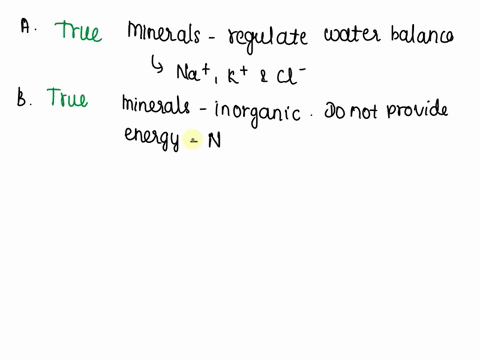 A. True Minerals - regulate water balance
↳ Na⁺, K⁺ & Cl⁻
B. True minerals - inorganic. Do not provide
energy - N